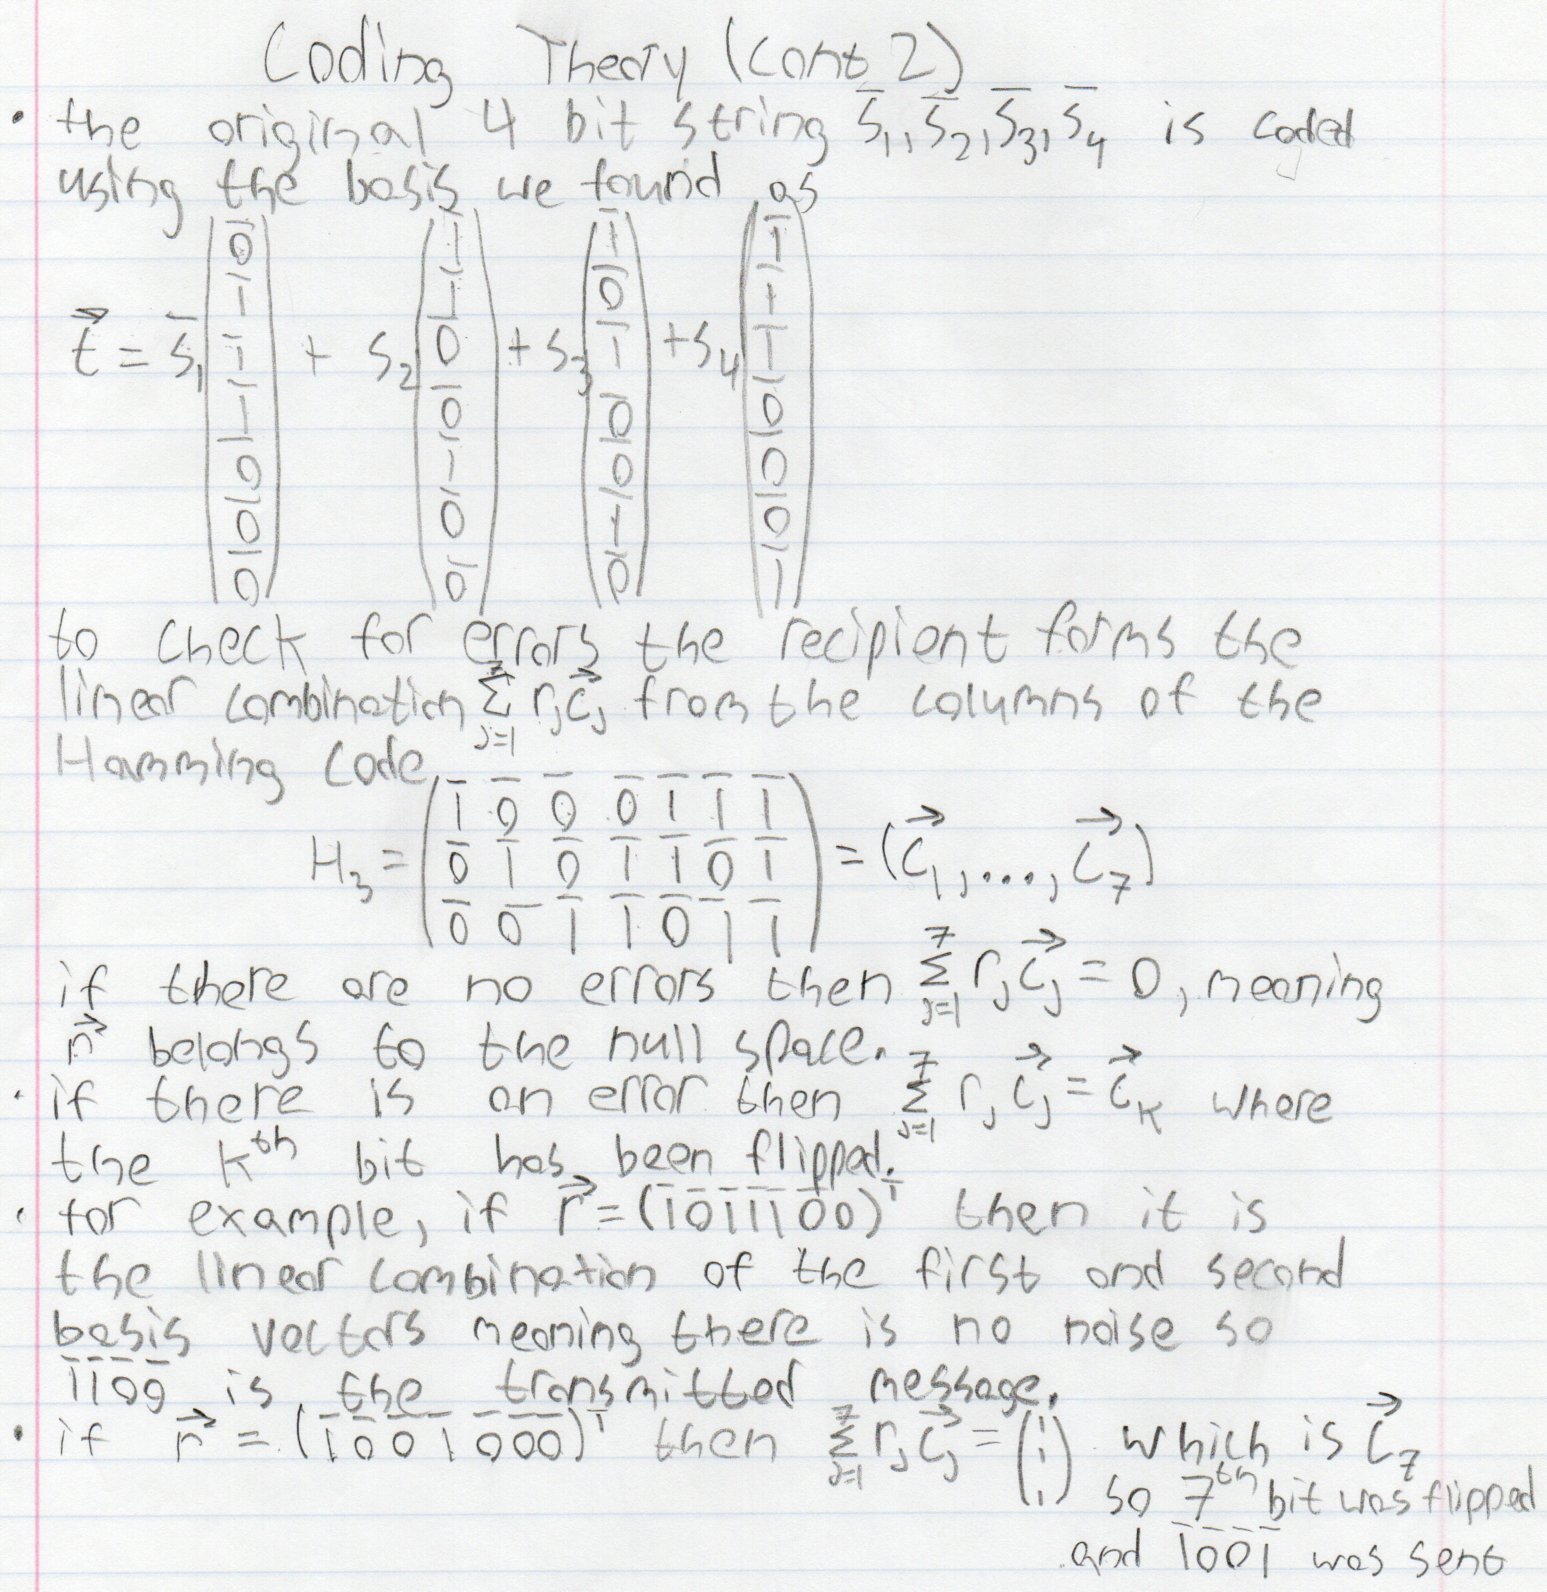 Coding Theory (cont 2)
• the original 4 bit string s̄₁, s̄₂, s̄₃, s̄₄ is coded
using the basis we found as
t⃗ = s̄₁ (0̄ 1̄ 1̄ 1̄ 0̄ 0̄ 0̄) + s₂ (1̄ 1̄ 0̄ 0̄ 1̄ 0̄ 0̄) + s₃ (1̄ 0̄ 1̄ 0̄ 0̄ 1̄ 0̄) + s₄ (1̄ 1̄ 1̄ 0̄ 0̄ 0̄ 1̄)
to check for errors the recipient forms the
linear combination Σ_{j=1}^{7} rⱼ c⃗ⱼ from the columns of the
Hamming Code
1̄ 0̄ 0̄ 0̄ 1̄ 1̄ 1̄
H₃ = ( 0̄ 1̄ 0̄ 1̄ 1̄ 0̄ 1̄ ) = (c⃗₁, ..., c⃗₇)
0̄ 0̄ 1̄ 1̄ 0̄ 1̄ 1̄
if there are no errors then Σ_{j=1}^{7} rⱼ c⃗ⱼ = 0, meaning
r⃗ belongs to the null space.
• if there is an error then Σ_{j=1}^{7} rⱼ c⃗ⱼ = c⃗ₖ where
the kᵗʰ bit has been flipped.
• for example, if r⃗ = (1̄0̄1̄1̄1̄0̄0̄)ᵀ then it is
the linear combination of the first and second
basis vectors meaning there is no noise so
1̄1̄0̄0̄ is the transmitted message.
• if r⃗ = (1̄0̄0̄1̄0̄0̄0̄)ᵀ then Σ_{j=1}^{7} rⱼ c⃗ⱼ = (1 1 1) which is c⃗₇
so 7ᵗʰ bit was flipped
and 1̄0̄0̄1̄ was sent